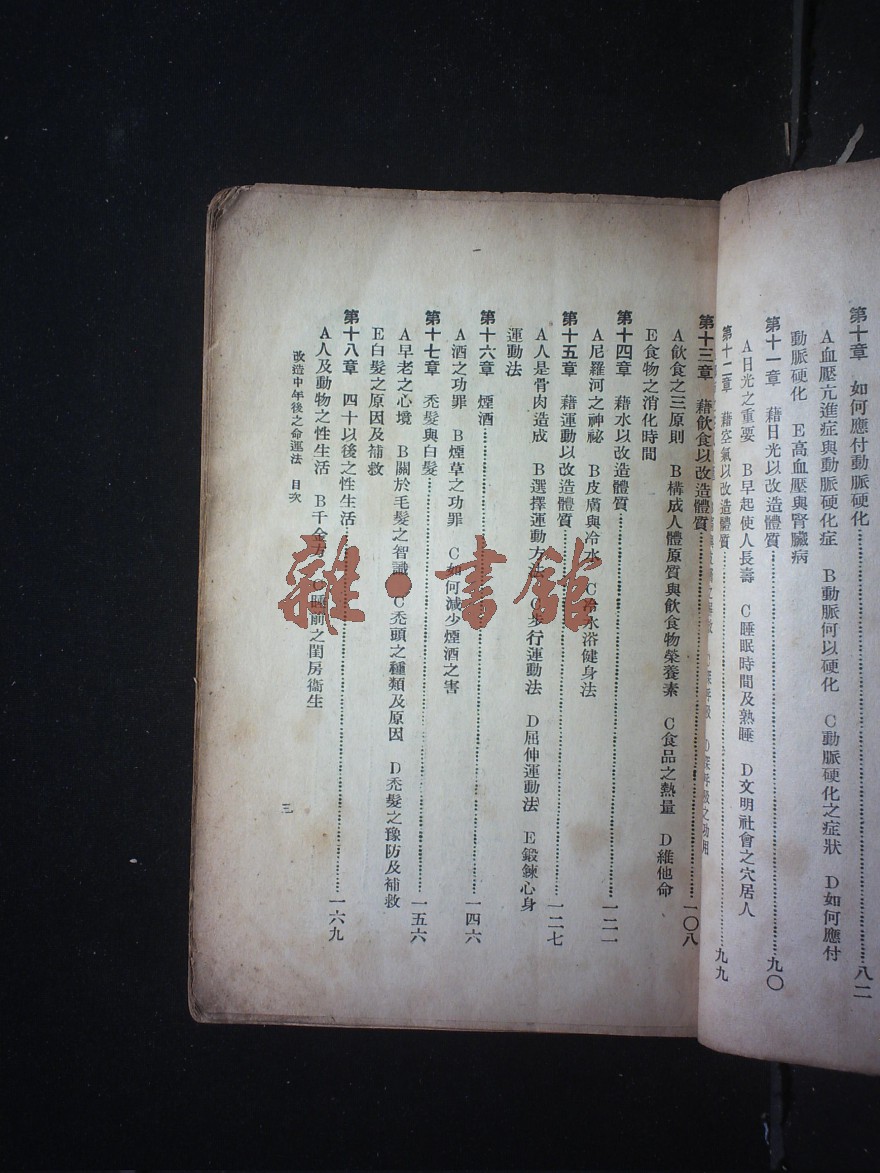 第十章　如何應付動脈硬化……八二
A血壓亢進症與動脈硬化症　B動脈何以硬化　C動脈硬化之症狀　D如何應付
動脈硬化　E高血壓與腎臟病
第十一章　藉日光以改造體質……九〇
A日光之重要　B早起使人長壽　C睡眠時間及熟睡　D文明社會之穴居人
第十二章　藉空氣以改造體質……九九
D深呼吸之功用
第十三章　藉飲食以改造體質……一〇八
A飲食之三原則　B構成人體原質與飲食物榮養素　C食品之熱量　D維他命
E食物之消化時間
第十四章　藉水以改造體質……一二一
A尼羅河之神祕　B皮膚與冷水　C冷水浴健身法
第十五章　藉運動以改造體質……一二七
A人是骨肉造成　B選擇運動方法　C步行運動法　D屈伸運動法　E鍛鍊心身
運動法
第十六章　煙酒……一四六
A酒之功罪　B煙草之功罪　C如何減少煙酒之害
第十七章　禿髮與白髮……一五六
A早老之心境　B關於毛髮之智識　C禿頭之種類及原因　D禿髮之豫防及補救
E白髮之原因及補救
第十八章　四十以後之性生活……一六九
A人及動物之性生活　B千金方　C睡前之閨房衞生
改造中年後之命運法　目次
三
雜·書館